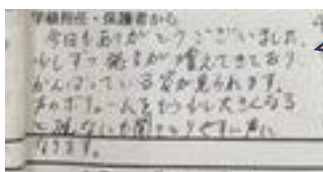 学級担任・保護者から
今日もありがとうございました。
少しずつ発言が増えてきており
がんばっている姿が見られます。
声のボリュームをもう少し大きくなる
と誰にも聞きとりやすい声に
なります。